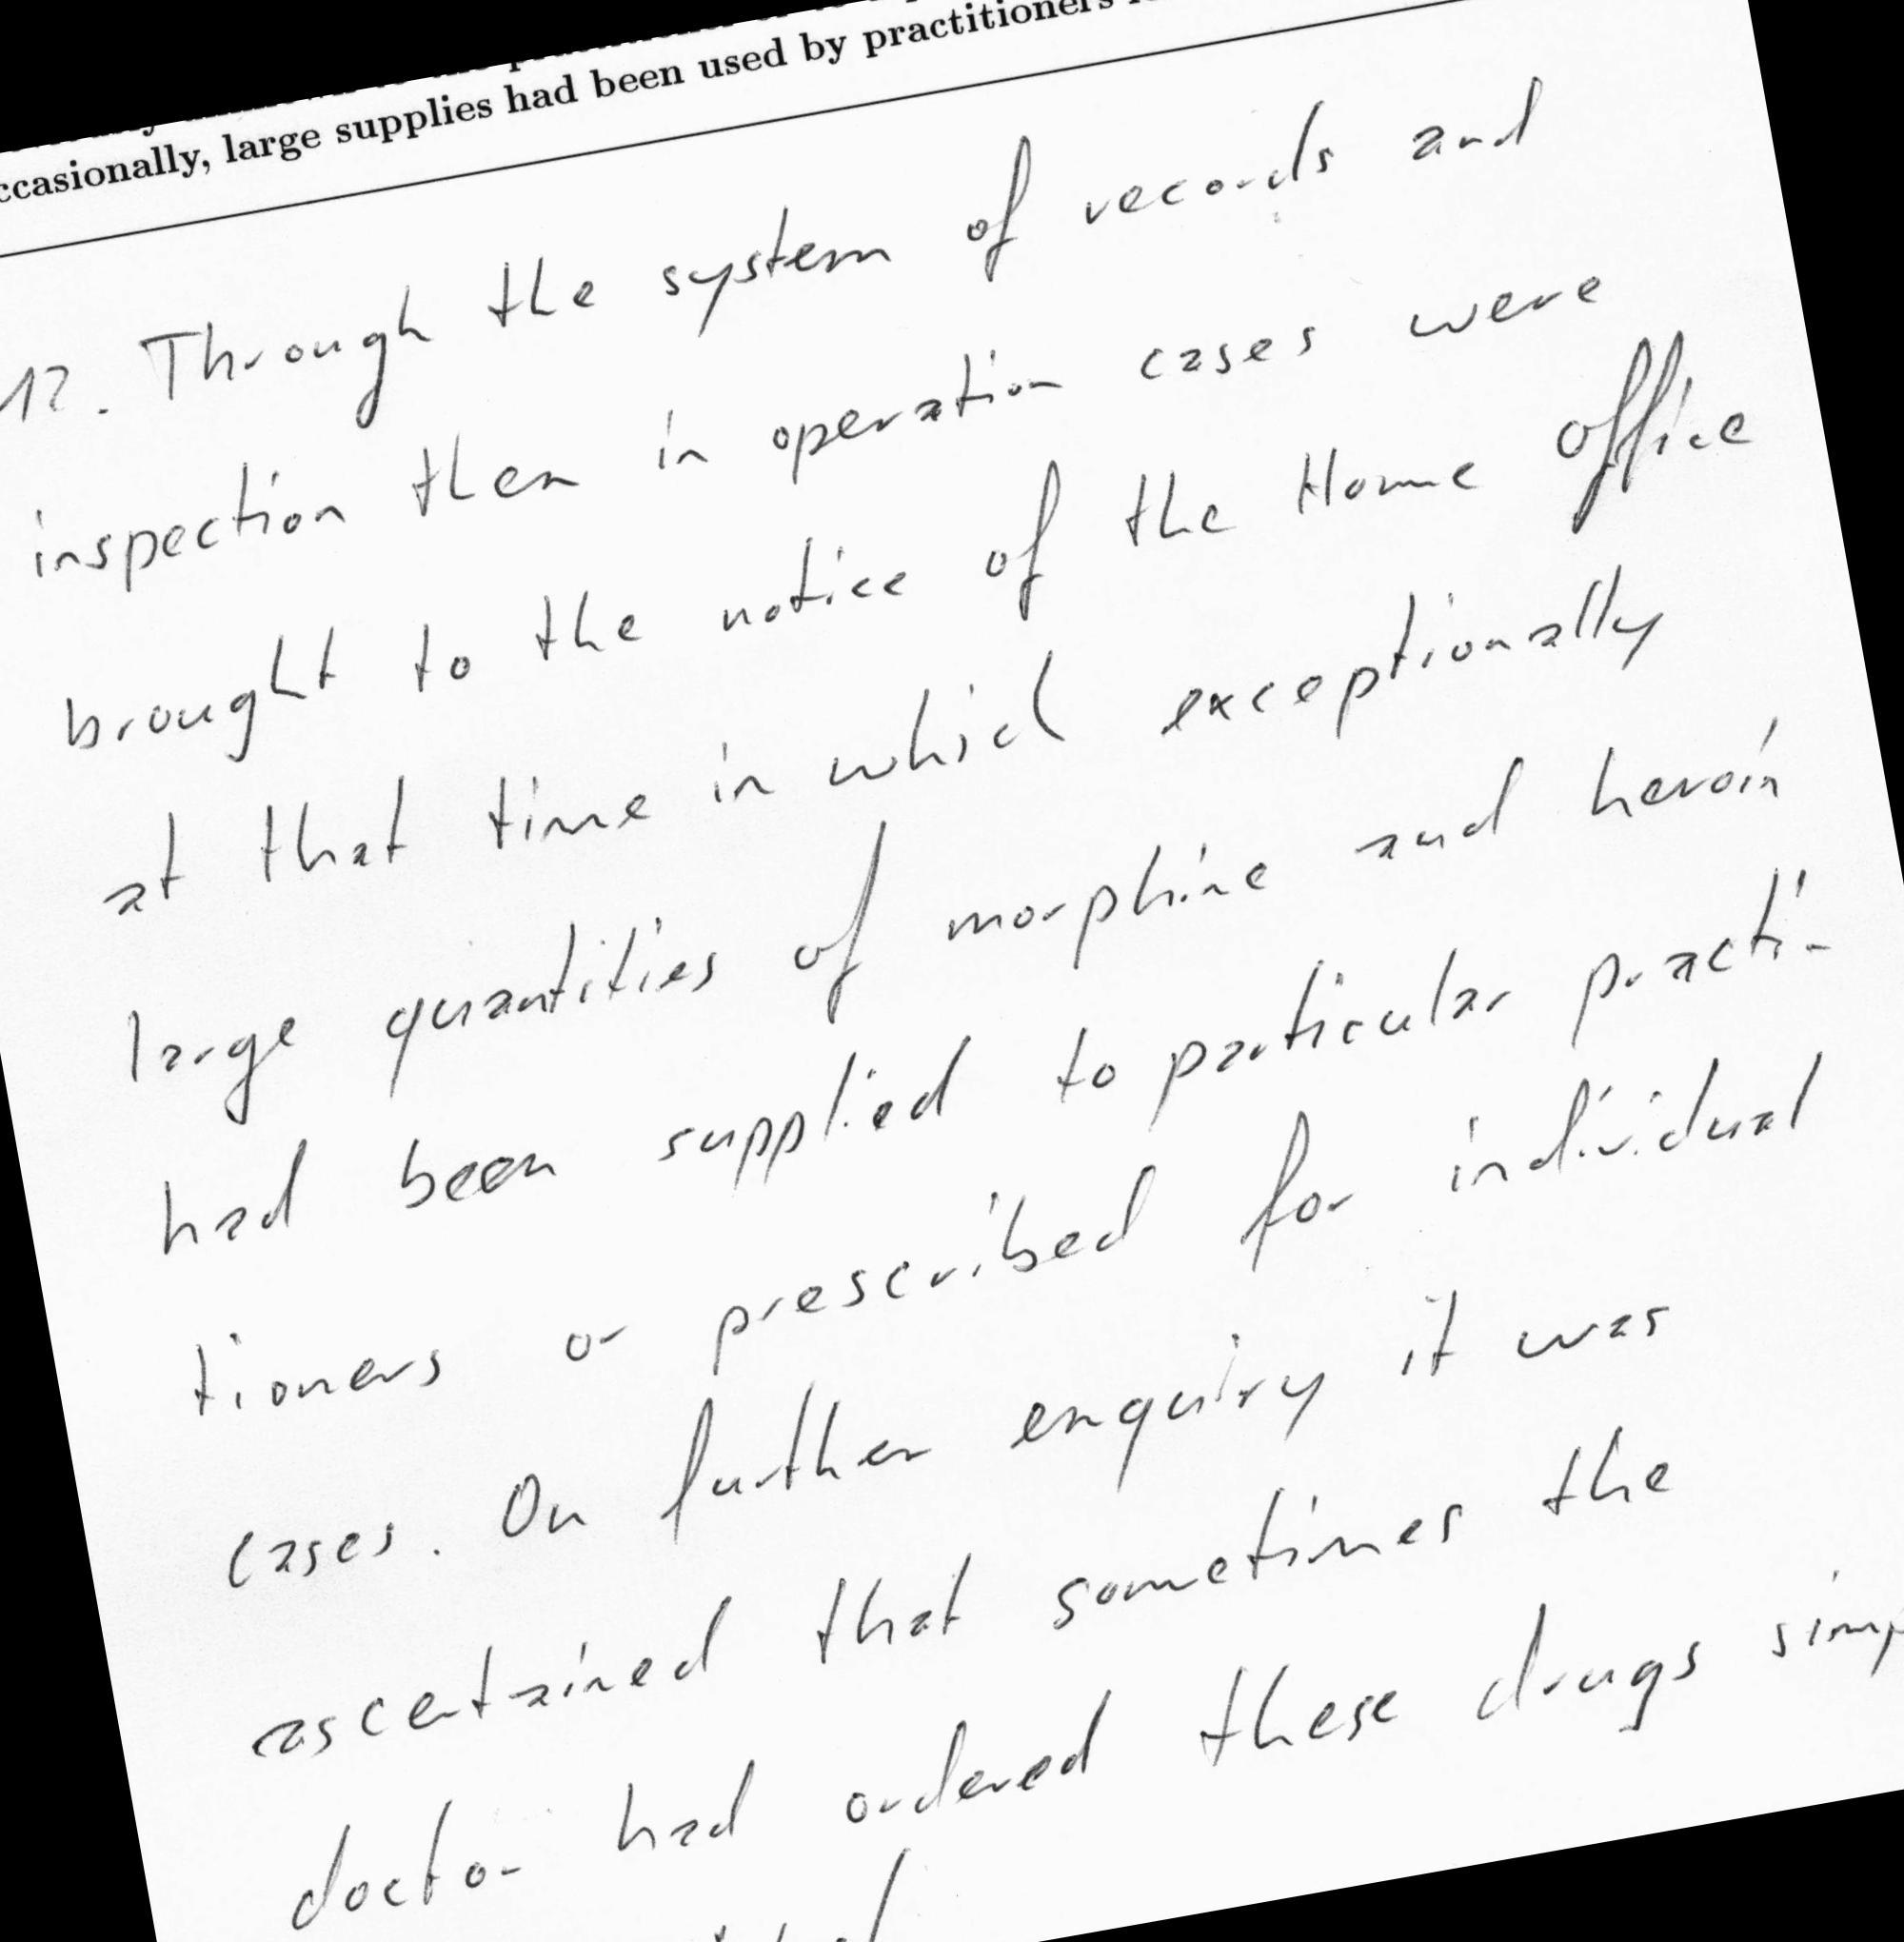 occasionally, large supplies had been used by practitioners
12. Through the system of records and
inspection then in operation cases were
brought to the notice of the Home Office
at that time in which exceptionally
large quantities of morphine and heroin
had been supplied to particular practi-
tioners or prescribed for individual
cases. On further enquiry it was
ascertained that sometimes the
doctor had ordered these drugs simp